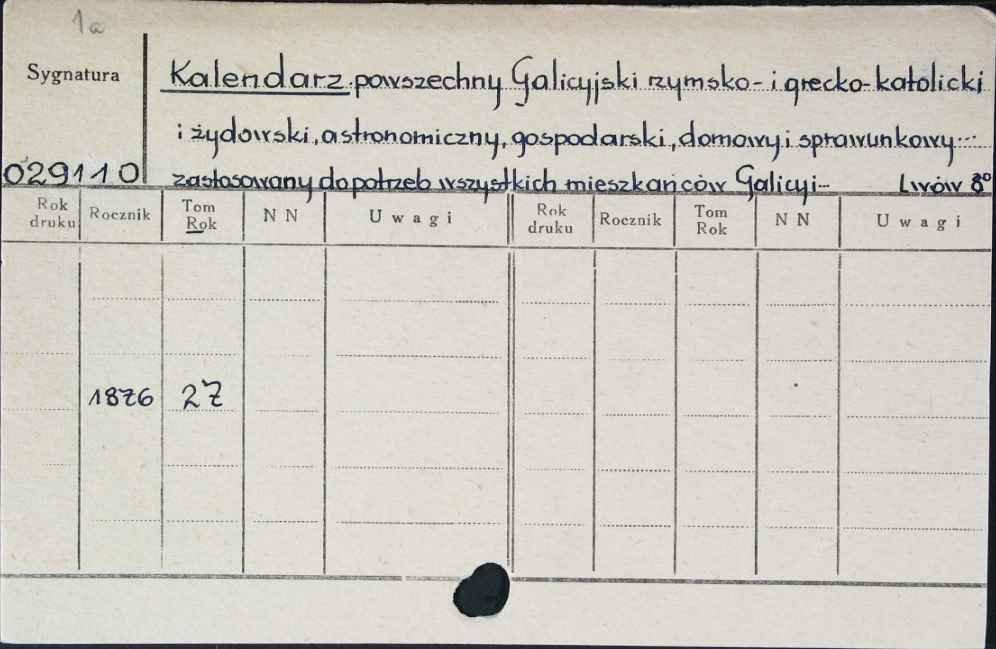 1a
Sygnatura
Kalendarz powszechny Galicyjski rzymsko- i grecko-katolicki
i żydowski, astronomiczny, gospodarski, domowy i sprawunkowy...
029110
zastosowany do potrzeb wszystkich mieszkańców Galicyi- Lwów 8°
Rok druku Rocznik Tom Rok N N Uwagi Rok druku Rocznik Tom Rok N N Uwagi
1876 27